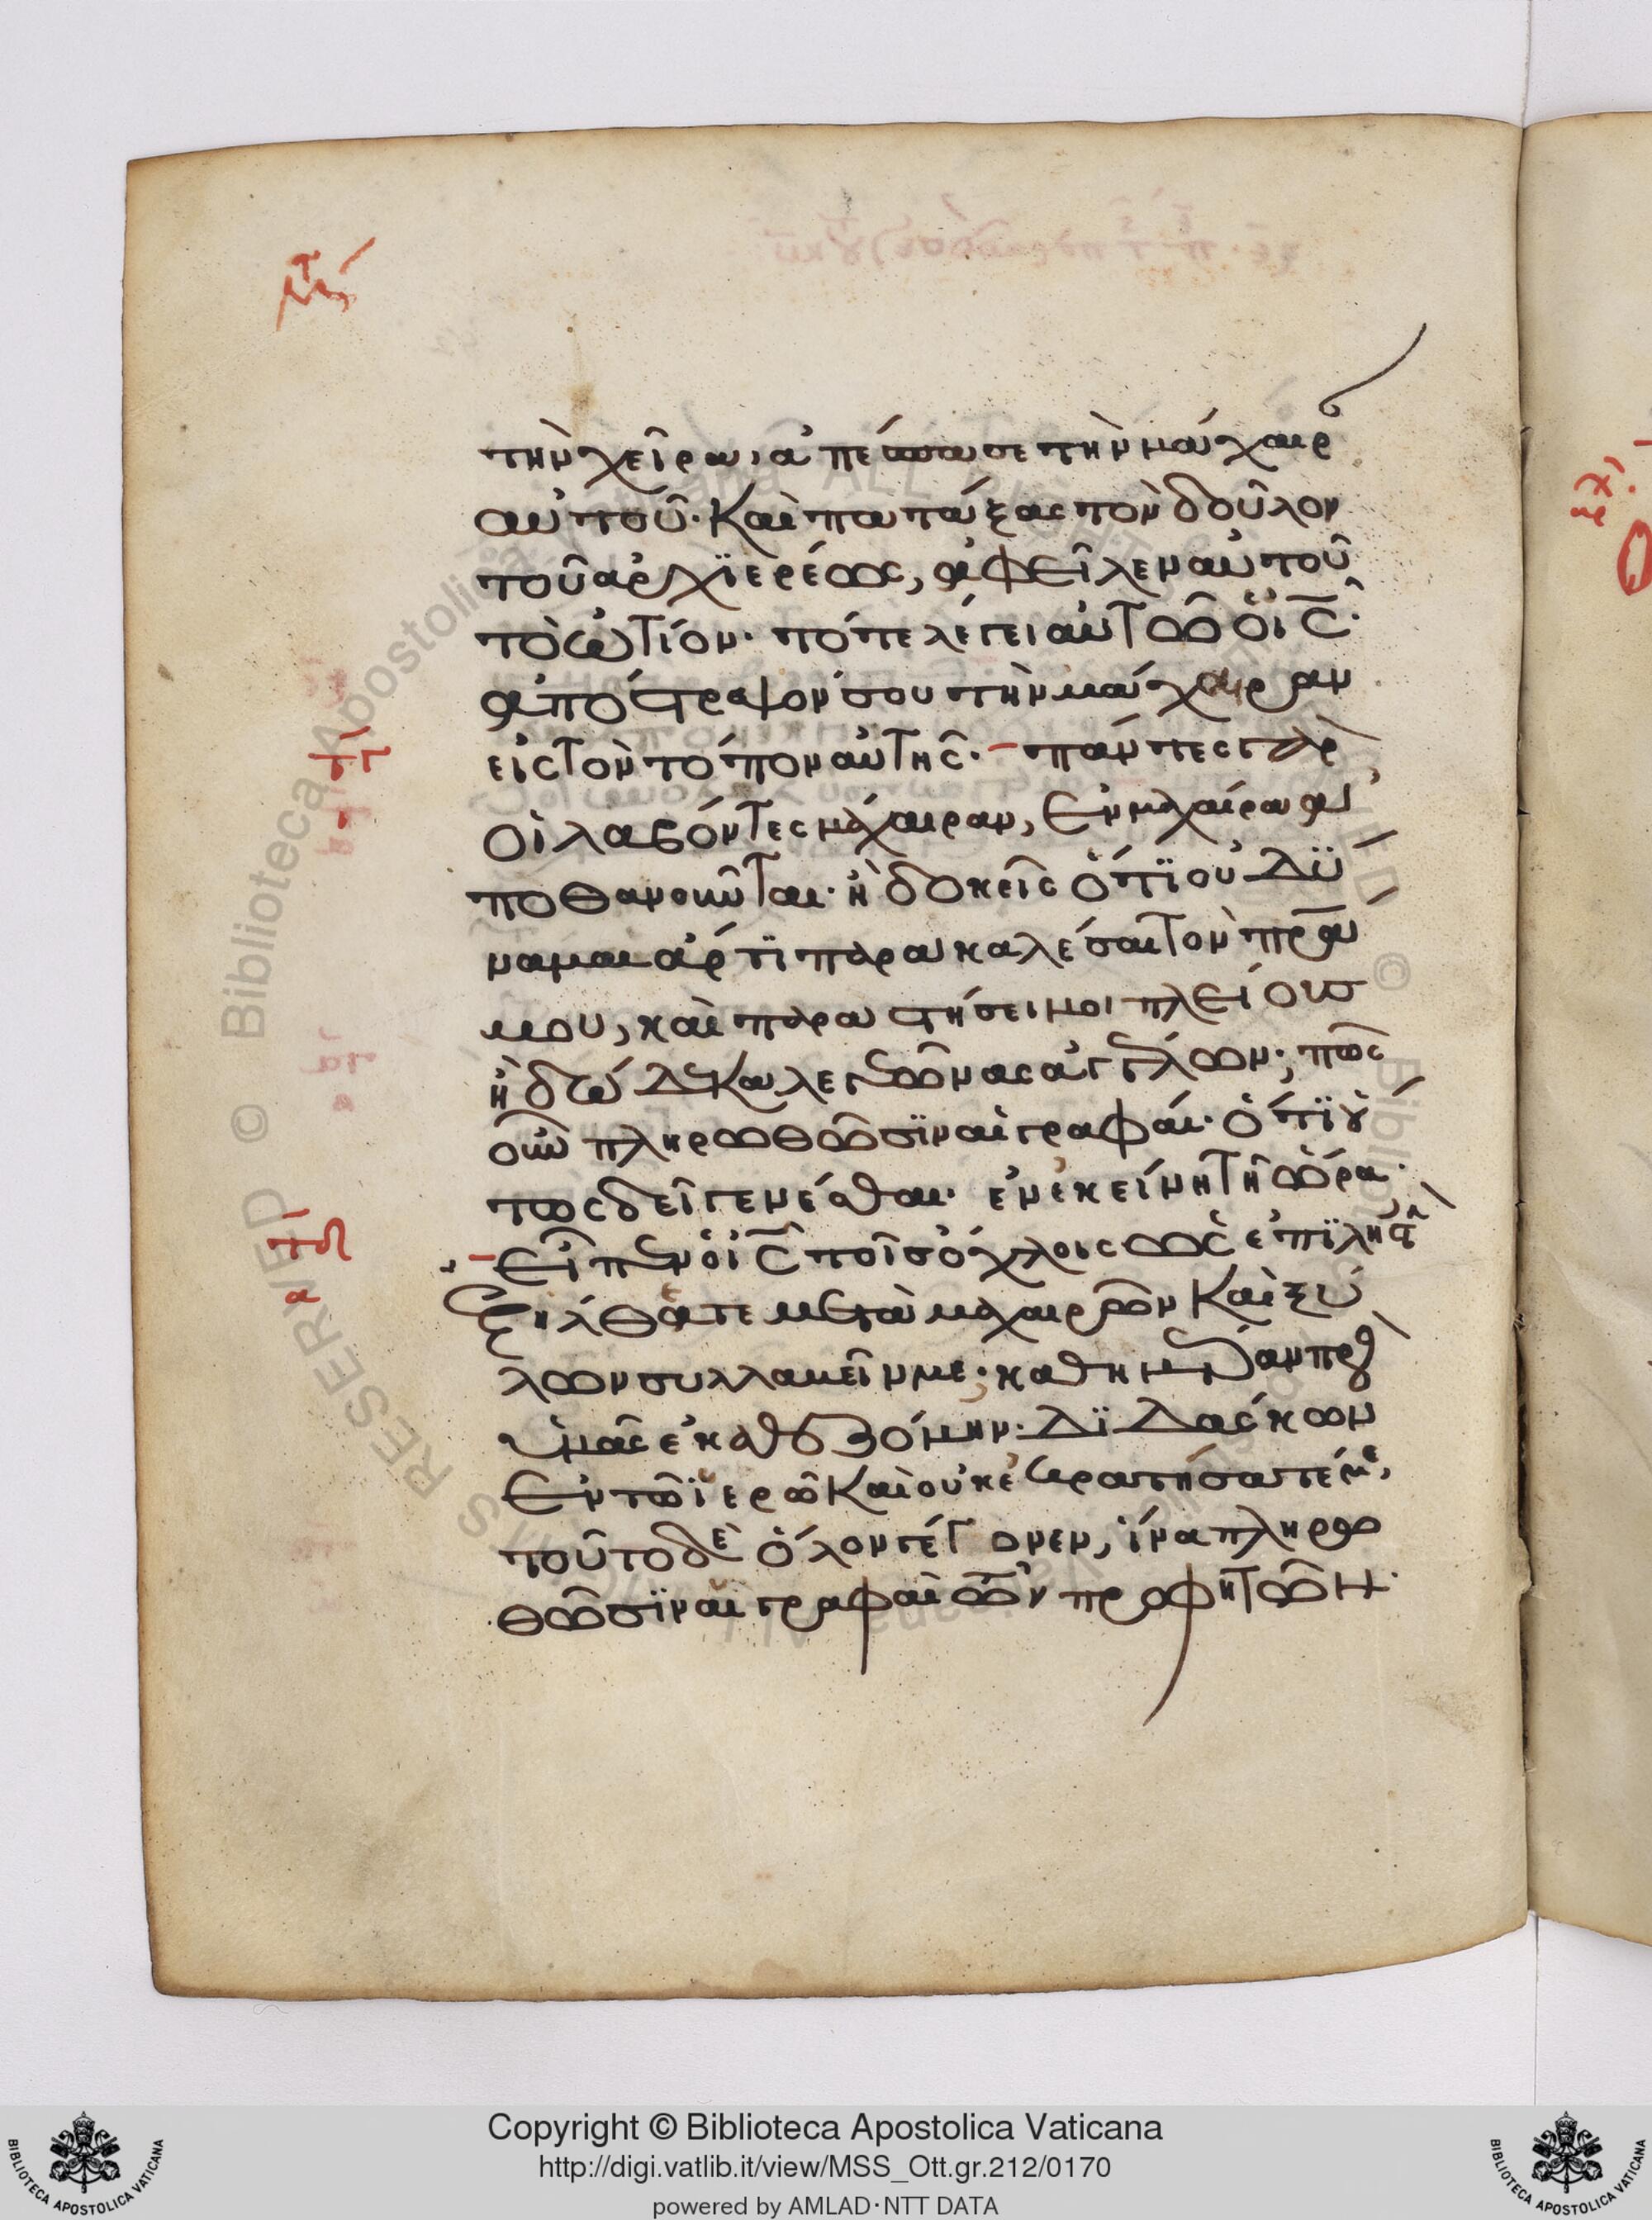 τὴν χεῖρα, ἀπέσπασε τὴν μάχαιρ
αὐτοῦ· Καὶ πατάξας τὸν δοῦλον
τοῦ ἀρχϊερέως, ἀφεῖλεν αὐτοῦ
τὸ ὠτίον· τότε λέγει αὐτῶ ὁ ι̅ς̅·
ἀπόστρεψον σου τὴν μάχαιραν
εἰς τὸν τόπον αὐτῆς· πάντες γὰρ
οἱ λαβόντες μάχαιραν, ἐν μαχαίρα ἀ
ποθανοῦνται· ἢ δοκεῖς ὅτϊ οὐ δϋ
ναμαι ἄρτϊ παρακαλέσαι τὸν π̅ρ̅α̅
μου, καὶ παραστήσει μοι πλείους
ἢ δώδεκα λεγεῶνας ἀγγέλων; πῶς
οὖν πληρωθῶσϊν αἱ γραφάι· ὅτϊ οὕ
τως δεῖ γενέσθαι· ἐν ἐκείνη τῆ ὥρα·
εἶπεν ὁ ι̅ς̅ τοῖς ὄχλοις ὡς ἐπϊ ληστὴν
ἐξήλθατε μετὰ μαχαιρῶν Καὶ ξύ
λων συλλαβεῖν με· καθημέραν πρὸς
ὑμᾶς ἐκαθεζόμην· δϊδάσκων
ἐν τῶ ἱερῶ Καὶ οὐκ ἐκρατήσατέ με,
τοῦτο δὲ ὅλον γέγονεν, ἵνα πληρω
θῶσϊν αἱ γραφαὶ τῶν προφητῶν·
Copyright © Biblioteca Apostolica Vaticana
http://digi.vatlib.it/view/MSS_Ott.gr.212/0170
powered by AMLAD·NTT DATA
BIBLIOTECA APOSTOLICA VATICANA
BIBLIOTECA APOSTOLICA VATICANA